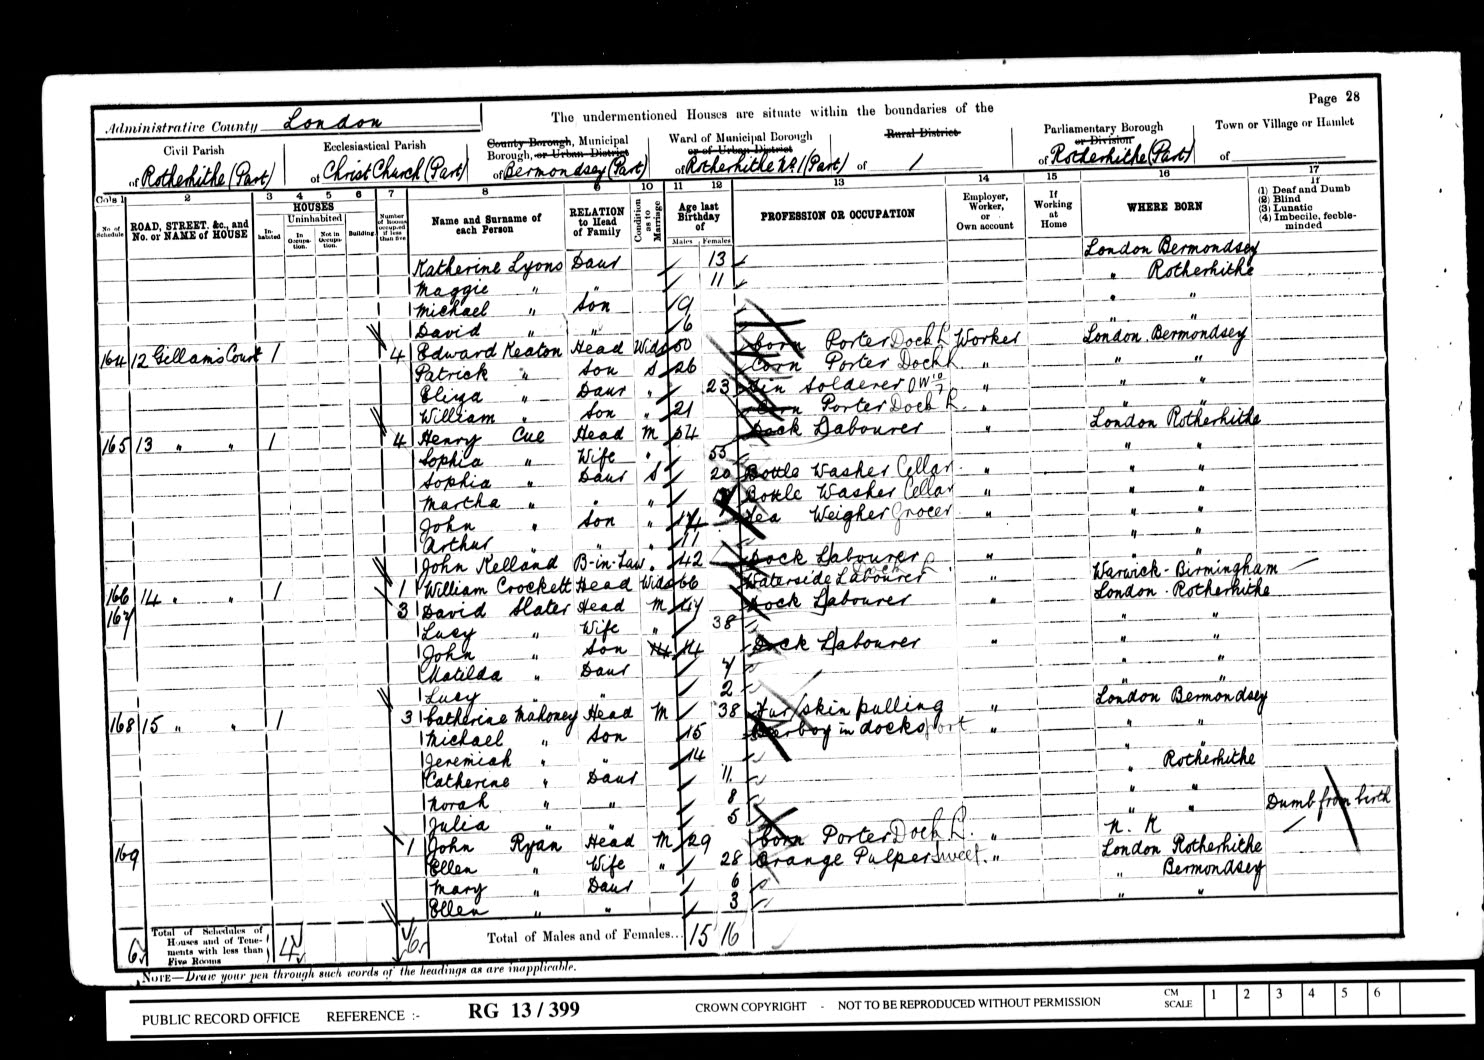 Page 28
The undermentioned Houses are situate within the boundaries of the
Administrative County London
Civil Parish of Rotherhithe (Part)
Ecclesiastical Parish of Christ Church (Part)
County Borough, Municipal Borough, or Urban District of Bermondsey (Part)
Ward of Municipal Borough or of Urban District of Rotherhithe No. 1 (Part)
Rural District of
Parliamentary Borough or Division of Rotherhithe (Part)
Town or Village or Hamlet of
Cols 1 2 3 4 5 6 7 8 9 10 11 12 13 14 15 16 17
No. of Schedule
ROAD, STREET, &c., and No. or NAME of HOUSE
HOUSES
Inhabited
Uninhabited
In Occupation.
Not in Occupation.
Building
Number of Rooms occupied if less than five
Name and Surname of each Person
RELATION to Head of Family
Condition as to Marriage
Age last Birthday of
Males Females
PROFESSION OR OCCUPATION
Employer, Worker, or Own account
If Working at Home
WHERE BORN
(1) Deaf and Dumb
(2) Blind
(3) Lunatic
(4) Imbecile, feeble-minded
Katherine Lyons Daur 13 London Bermondsey
Maggie " " 11 " Rotherhithe
Michael " Son 9 " "
David " " 6 " "
164 12 Gillams Court 1 4 Edward Keaton Head Widr 50 Corn Porter Dock L Worker London Bermondsey
Patrick " Son S 26 Corn Porter Dock L " " "
Eliza " Daur " 23 Tin Solderer " " "
William " Son " 21 Corn Porter Dock L. " " "
165 13 " " 1 4 Henry Cue Head M 54 Dock Labourer " London Rotherhithe
Sophia " Wife " 55 " "
Sophia " Daur S 20 Bottle Washer Cellar " " "
Martha " " " Bottle Washer Cellar " " "
John " Son " 14 Tea Weigher Grocer " " "
Arthur " " " 11 " "
John Kelland B-in-Law " 42 Dock Labourer " " "
166 14 " " 1 1 William Crockett Head Widr 66 Waterside Labourer Dock L " Warwick - Birmingham
167 3 David Slater Head M Dock Labourer " London . Rotherhithe
Lucy " Wife " 38 " "
John " Son 14 Dock Labourer " " "
Matilda " Daur 7 " "
Lucy " " 2 " "
168 15 " " 1 3 Catherine Mahoney Head M 38 Fur/skin pulling " London Bermondsey
Michael " Son 15 Beerboy in docks port " " "
Jeremiah " " 14 " "
Catherine " Daur 11 " Rotherhithe
Norah " " 8 " "
Julia " " 5 " " Dumb from birth
169 1 John Ryan Head M 29 Corn Porter Dock L. " N. K
Ellen " Wife " 28 Orange Pulper Sweet. " London Rotherhithe
Mary " Daur 6 " Bermondsey
Ellen " " 3 " "
6 Total of Schedules of Houses and of Tenements with less than Five Rooms 4 6 Total of Males and of Females... 15 16
NOTE—Draw your pen through such words of the headings as are inapplicable.
PUBLIC RECORD OFFICE REFERENCE :- RG 13 / 399 CROWN COPYRIGHT - NOT TO BE REPRODUCED WITHOUT PERMISSION CM SCALE 1 2 3 4 5 6